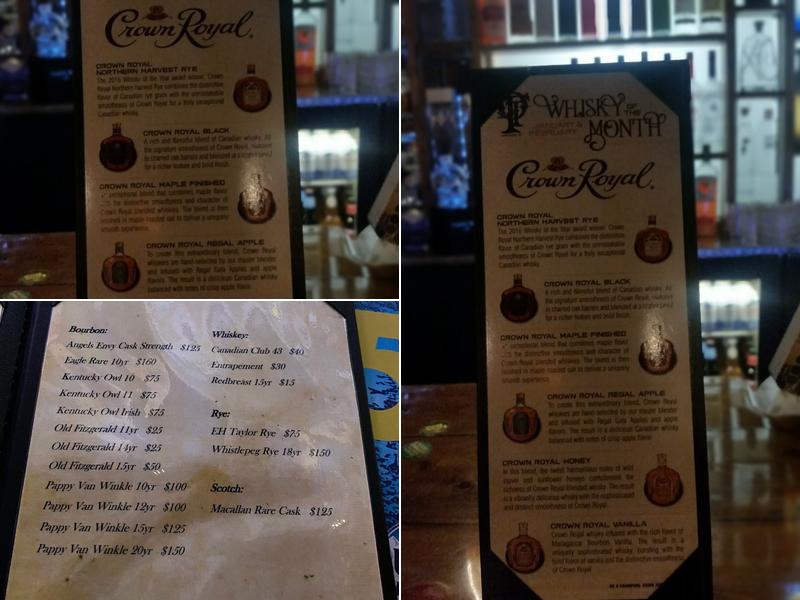 Crown Royal
CROWN ROYAL
NORTHERN HARVEST RYE
The 2016 Whisky of the Year award winner, Crown
Royal Northern Harvest Rye combines the distinctive
flavor of Canadian rye grain with the unmistakable
smoothness of Crown Royal for a truly exceptional
Canadian whisky.
CROWN ROYAL BLACK
A rich and flavorful blend of Canadian whisky. All
the signature smoothness of Crown Royal, matured
in charred oak barrels and blended at a higher proof
for a richer texture and bold finish.
CROWN ROYAL MAPLE FINISHED
exceptional blend that combines maple flavor
the distinctive smoothness and character of
Crown Royal blended whiskies. The blend is then
finished in maple-toasted oak to deliver a uniquely
smooth experience.
CROWN ROYAL REGAL APPLE
To create this extraordinary blend, Crown Royal
whiskies are hand-selected by our master blender
and infused with Regal Gala Apples and apple
flavors. The result is a delicious Canadian whisky
balanced with notes of crisp apple flavor.
Bourbon:
Angels Envy Cask Strength $125
Eagle Rare 10yr $160
Kentucky Owl 10 $75
Kentucky Owl 11 $75
Kentucky Owl Irish $75
Old Fitzgerald 11yr $25
Old Fitzgerald 14yr $25
Old Fitzgerald 15yr $50
Pappy Van Winkle 10yr $100
Pappy Van Winkle 12yr $100
Pappy Van Winkle 15yr $125
Pappy Van Winkle 20yr $150
Whiskey:
Canadian Club 43 $40
Entrapement $30
Redbreast 15yr $15
Rye:
EH Taylor Rye $75
Whistlepeg Rye 18yr $150
Scotch:
Macallan Rare Cask $125
WHISKY OF THE
JANUARY &
FEBRUARY
MONTH
Crown Royal
CROWN ROYAL
NORTHERN HARVEST RYE
The 2016 Whisky of the Year award winner, Crown
Royal Northern Harvest Rye combines the distinctive
flavor of Canadian rye grain with the unmistakable
smoothness of Crown Royal for a truly exceptional
Canadian whisky.
CROWN ROYAL BLACK
A rich and flavorful blend of Canadian whisky. All
the signature smoothness of Crown Royal, matured
in charred oak barrels and blended at a higher proof
for a richer texture and bold finish.
CROWN ROYAL MAPLE FINISHED
exceptional blend that combines maple flavor
the distinctive smoothness and character of
Crown Royal blended whiskies. The blend is then
finished in maple-toasted oak to deliver a uniquely
smooth experience.
CROWN ROYAL REGAL APPLE
To create this extraordinary blend, Crown Royal
whiskies are hand-selected by our master blender
and infused with Regal Gala Apples and apple
flavors. The result is a delicious Canadian whisky
balanced with notes of crisp apple flavor.
CROWN ROYAL HONEY
In this blend, the sweet harmonious notes of wild
clover and sunflower honeys complement the
richness of Crown Royal blended whisky. The result
is a vibrantly delicious whisky with the sophisticated
and distinct smoothness of Crown Royal.
CROWN ROYAL VANILLA
Crown Royal whisky infused with the rich flavor of
Madagascar Bourbon Vanilla. The result is a
uniquely sophisticated whisky, bursting with the
bold flavor of vanilla and the distinctive smoothness
of Crown Royal.